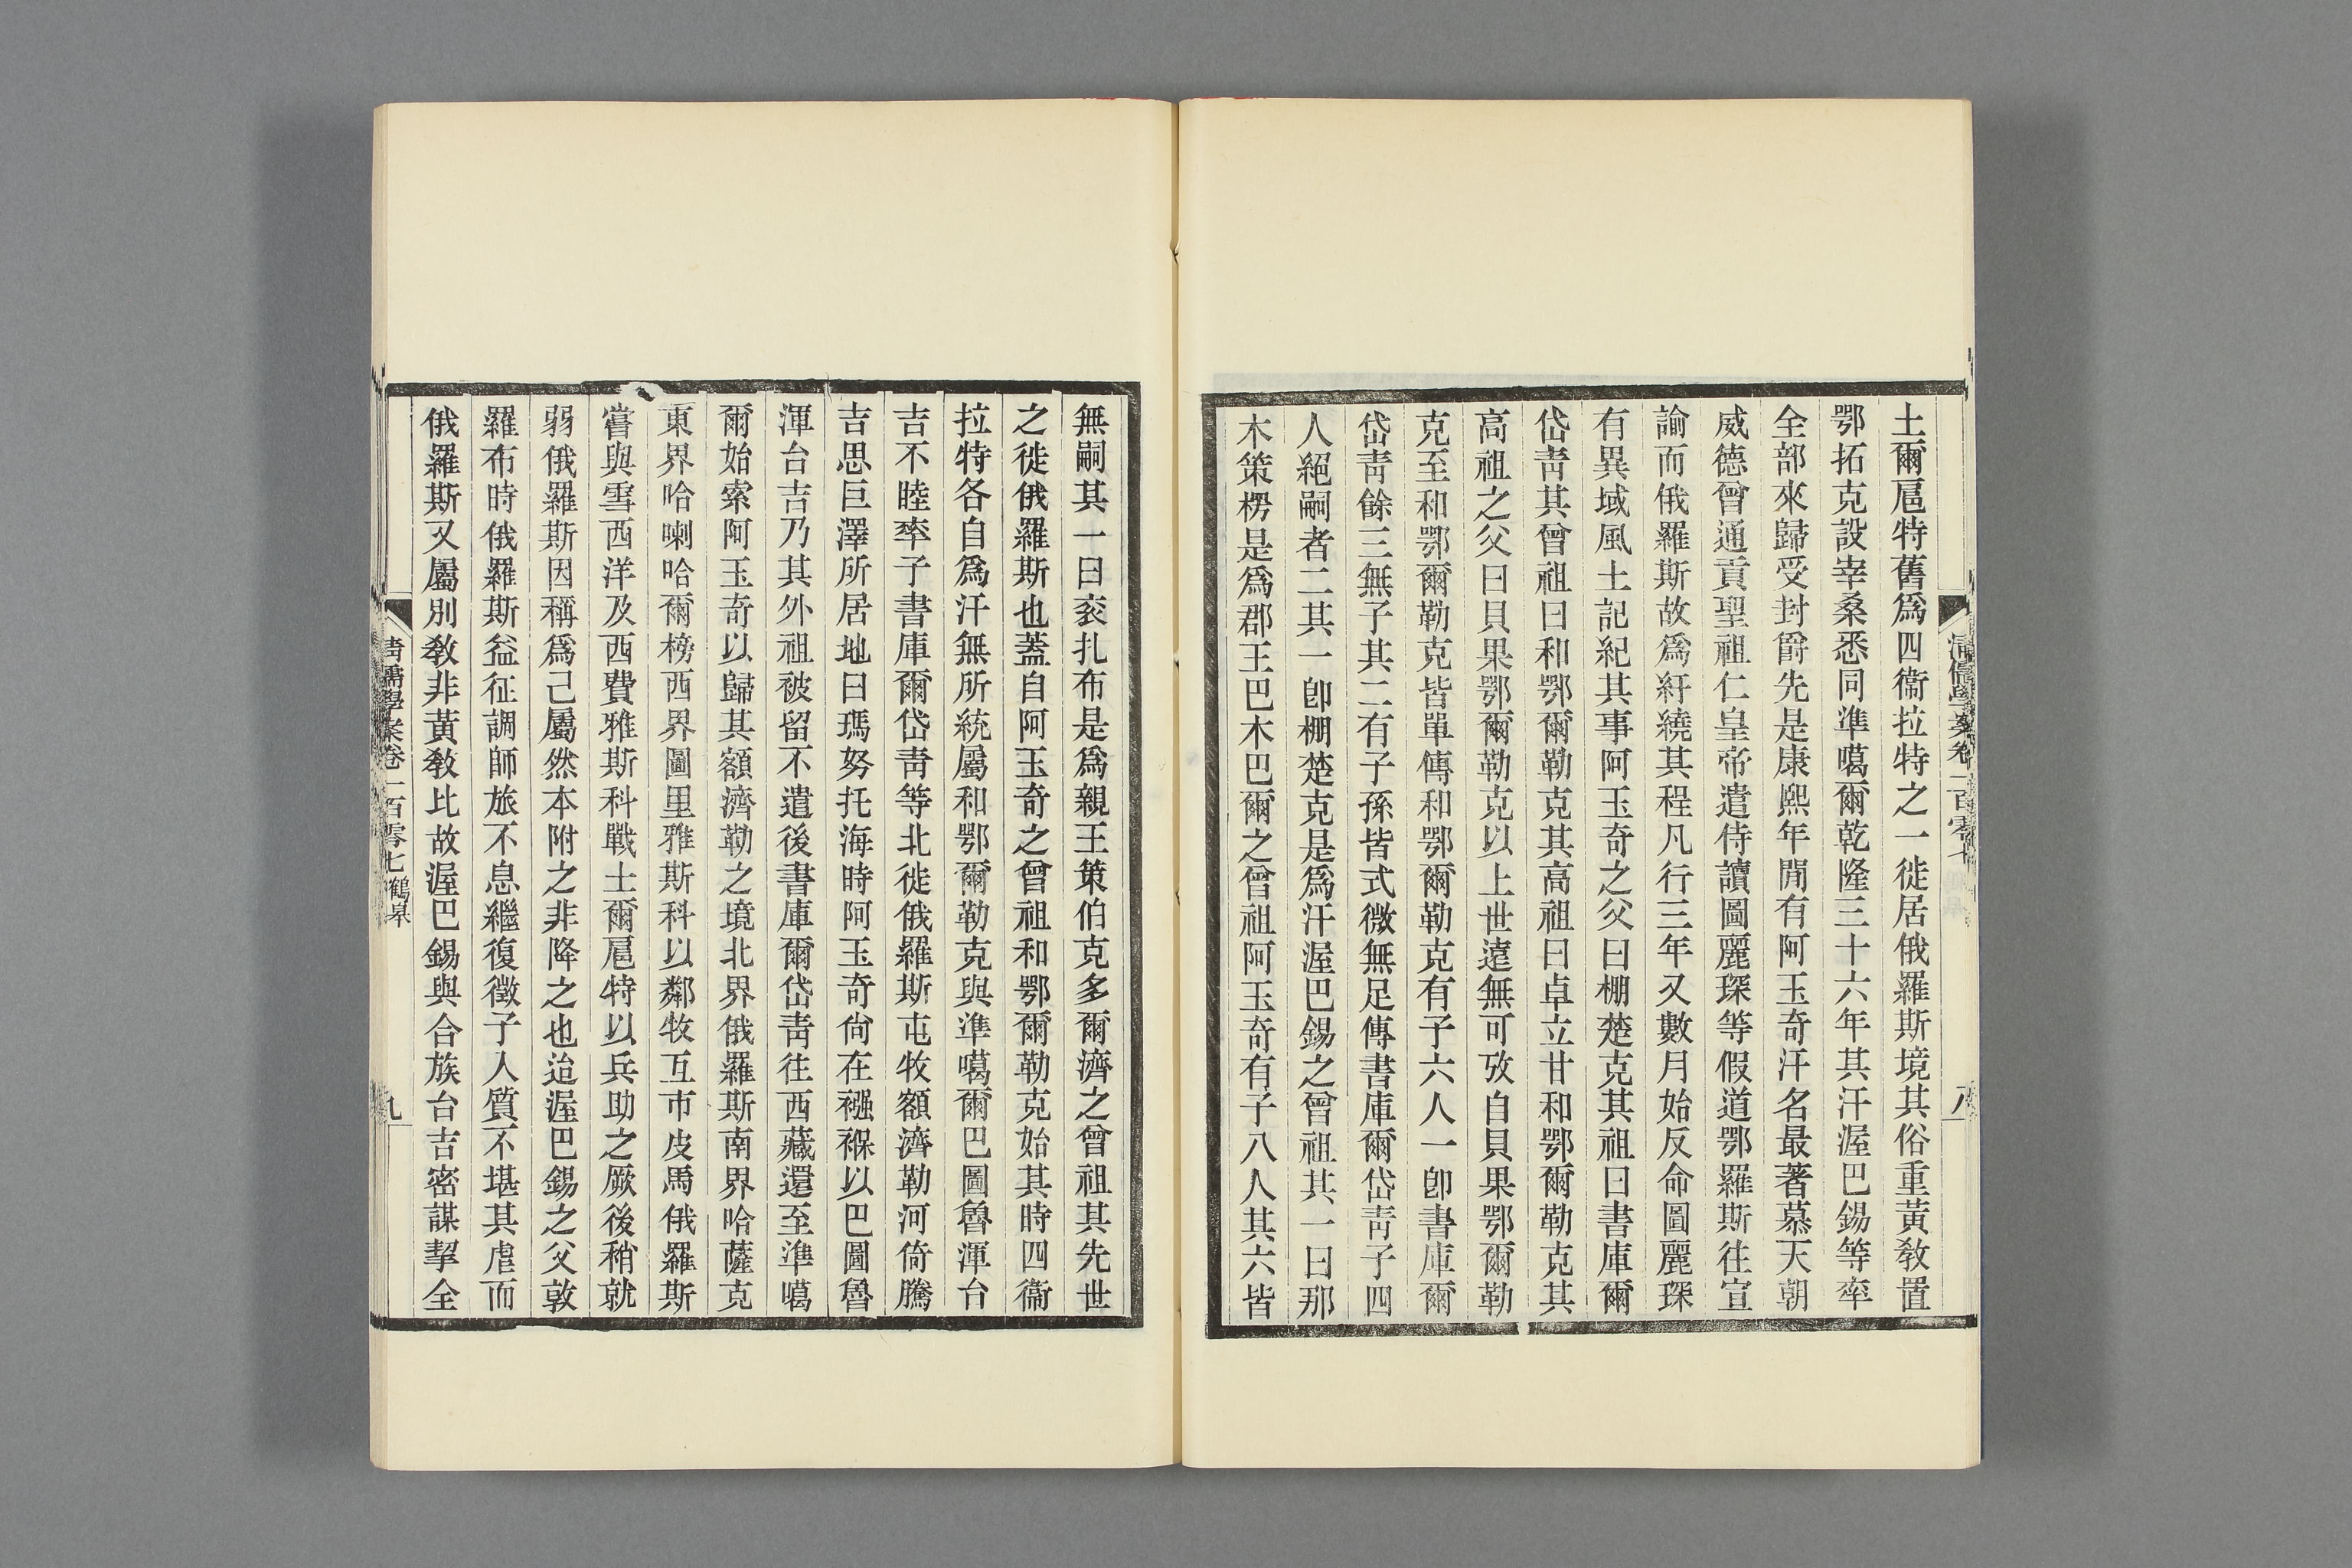 土爾扈特舊爲四衞拉特之一徙居俄羅斯境其俗重黃敎置
鄂拓克設宰桑悉同準噶爾乾隆三十六年其汗渥巴錫等率
全部來歸受封爵先是康熙年閒有阿玉奇汗名最著慕天朝
威德曾通貢聖祖仁皇帝遣侍讀圖麗琛等假道鄂羅斯往宣
諭而俄羅斯故爲紆繞其程凡行三年又數月始反命圖麗琛
有異域風土記紀其事阿玉奇之父曰棚楚克其祖曰書庫爾
岱靑其曾祖曰和鄂爾勒克其高祖曰卓立甘和鄂爾勒克其
高祖之父曰貝果鄂爾勒克以上世遠無可攷自貝果鄂爾勒
克至和鄂爾勒克皆單傳和鄂爾勒克有子六人一卽書庫爾
岱靑餘三無子其二有子孫皆式微無足傳書庫爾岱靑子四
人絕嗣者二其一卽棚楚克是爲汗渥巴錫之曾祖其一曰那
木策楞是爲郡王巴木巴爾之曾祖阿玉奇有子八人其六皆
淸儒學案卷二百零七
八
無嗣其一曰衮扎布是爲親王策伯克多爾濟之曾祖其先世
之徙俄羅斯也蓋自阿玉奇之曾祖和鄂爾勒克始其時四衞
拉特各自爲汗無所統屬和鄂爾勒克與準噶爾巴圖魯渾台
吉不睦率子書庫爾岱靑等北徙俄羅斯屯牧額濟勒河倚騰
吉思巨澤所居地曰瑪努托海時阿玉奇尙在襁褓以巴圖魯
渾台吉乃其外祖被留不遣後書庫爾岱靑往西藏還至準噶
爾始索阿玉奇以歸其額濟勒之境北界俄羅斯南界哈薩克
東界哈喇哈爾榜西界圖里雅斯科以鄰牧互市皮馬俄羅斯
嘗與雪西洋及西費雅斯科戰土爾扈特以兵助之厥後稍就
弱俄羅斯因稱爲己屬然本附之非降之也迨渥巴錫之父敦
羅布時俄羅斯益征調師旅不息繼復徵子入質不堪其虐而
俄羅斯又屬別敎非黃敎比故渥巴錫與合族台吉密謀挈全
淸儒學案卷二百零七 鶴皋
九